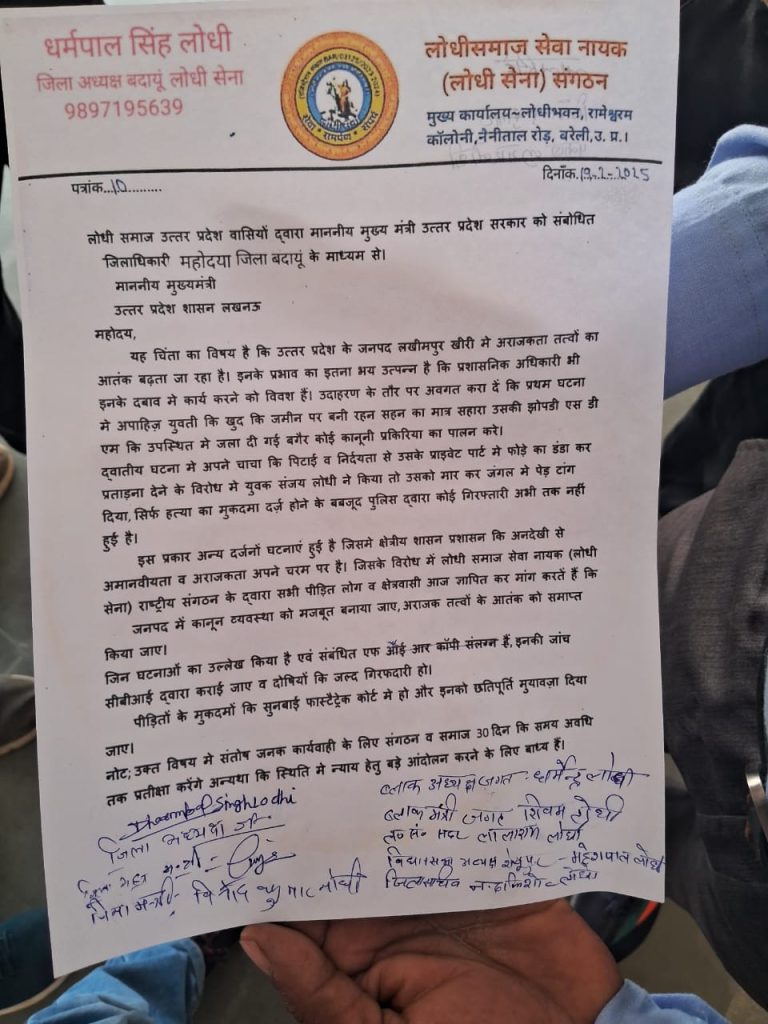 धर्मपाल सिंह लोधी
जिला अध्यक्ष बदायूं लोधी सेना
9897195639
लोधीसमाज सेवा नायक
(लोधी सेना) संगठन
मुख्य कार्यालय-लोधीभवन, रामेश्वरम
कॉलोनी,नैनीताल रोड़, बरेली,उ. प्र.।
सेवा * समर्पण * संघर्ष
पत्रांक...10.........
दिनाँक.19.2-2025
लोधी समाज उत्तर प्रदेश वासियों द्वारा माननीय मुख्य मंत्री उत्तर प्रदेश सरकार को संबोधित
जिलाधिकारी महोदया जिला बदायूं के माध्यम से।
माननीय मुख्यमंत्री
उत्तर प्रदेश शासन लखनऊ
महोदय,
यह चिंता का विषय है कि उत्तर प्रदेश के जनपद लखीमपुर खीरी मे अराजकता तत्वों का
आतंक बढ़ता जा रहा है। इनके प्रभाव का इतना भय उत्पन्न है कि प्रशासनिक अधिकारी भी
इनके दबाव मे कार्य करने को विवश हैं। उदाहरण के तौर पर अवगत करा दें कि प्रथम घटना
मे अपाहिज़ युवती कि खुद कि जमीन पर बनी रहन सहन का मात्र सहारा उसकी झोपडी एस डी
एम कि उपस्थित मे जला दी गई बगैर कोई कानूनी प्रकिरिया का पालन करे।
द्वातीय घटना मे अपने चाचा कि पिटाई व निर्दयता से उसके प्राइवेट पार्ट मे फोड़े का डंडा कर
प्रताड़ना देने के विरोध मे युवक संजय लोधी ने किया तो उसको मार कर जंगल मे पेड़ टांग
दिया, सिर्फ हत्या का मुकदमा दर्ज़ होने के बबजूद पुलिस द्वारा कोई गिरफ्तारी अभी तक नहीं
हुई है।
इस प्रकार अन्य दर्जनों घटनाएं हुई है जिसमे क्षेत्रीय शासन प्रशासन कि अनदेखी से
अमानवीयता व अराजकता अपने चरम पर है। जिसके विरोध में लोधी समाज सेवा नायक (लोधी
सेना) राष्ट्रीय संगठन के द्वारा सभी पीड़ित लोग व क्षेत्रवासी आज ज्ञापित कर मांग करतें हैं कि
जनपद में कानून व्यवस्था को मजबूत बनाया जाए,अराजक तत्वों के आतंक को समाप्त
किया जाए।
जिन घटनाओं का उल्लेख किया है एवं संबंधित एफ आई आर कॉपी संलग्न हैं,इनकी जांच
सीबीआई द्वारा कराई जाए व दोषियों कि जल्द गिरफदारी हो।
पीड़ितों के मुकदमों कि सुनबाई फास्टैट्रेक कोर्ट मे हो और इनको छतिपूर्ति मुयावज़ा दिया
जाए।
नोट; उक्त विषय मे संतोष जनक कार्यवाही के लिए संगठन व समाज 30 दिन कि समय अवधि
तक प्रतीक्षा करेंगे अन्यथा कि स्थिति मे न्याय हेतु बड़े आंदोलन करने के लिए बाध्य हैं।
Singh Lodhi
जिला अध्यक्ष
जिला मंत्री- विनोद कुमार लोधी
ब्लाक अध्यक्ष जगत- धर्मेन्द्र लोधी
ब्लाक मंत्री जगत शिवम लोधी
लालाराम लोधी
महेशपाल लोधी
जिलासचिव नन्दकिशोर लोधी